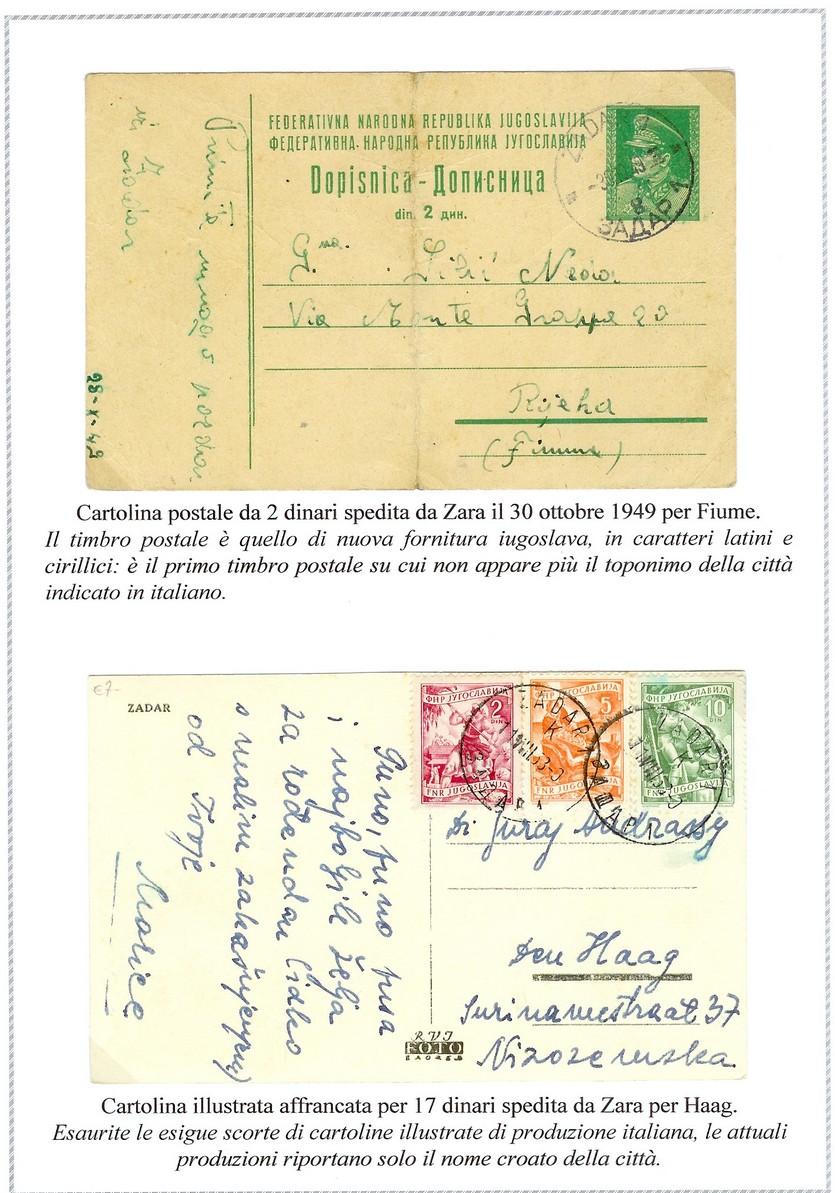 FEDERATIVNA NARODNA REPUBLIKA JUGOSLAVIJA
ФЕДЕРАТИВНА НАРОДНА РЕПУБЛИКА ЈУГОСЛАВИЈА
Dopisnica - Дописница
din. 2 дин.
ZADAR 1
ЗАДАР 1
Gna. Lilić Neda
Via Monte Grappa 20
Rijeka
(Fiume)
Primite mnogo pozdrava
iz Zadra
28-X-49
Cartolina postale da 2 dinari spedita da Zara il 30 ottobre 1949 per Fiume.
Il timbro postale è quello di nuova fornitura iugoslava, in caratteri latini e
cirillici: è il primo timbro postale su cui non appare più il toponimo della città
indicato in italiano.
€7-
ZADAR
ФНР ЈУГОСЛАВИЈА
2
DIN
FNR JUGOSLAVIJA
ФНР ЈУГОСЛАВИЈА
5
FNR JUGOSLAVIJA
ФНР ЈУГОСЛАВИЈА
10
DIN
FNR JUGOSLAVIJA
ZADAR
K
ZADAR
K
Puno, puno pusa
i najboljih želja
za rođendan Čidko
s malim zakašnjenjem)
od Tvoje
Marice
Dr Juraj Andrassy
Den Haag
Surinamestraat 37
Nizozemska
RVI
FOTO
ZAGREB
Cartolina illustrata affrancata per 17 dinari spedita da Zara per Haag.
Esaurite le esigue scorte di cartoline illustrate di produzione italiana, le attuali
produzioni riportano solo il nome croato della città.